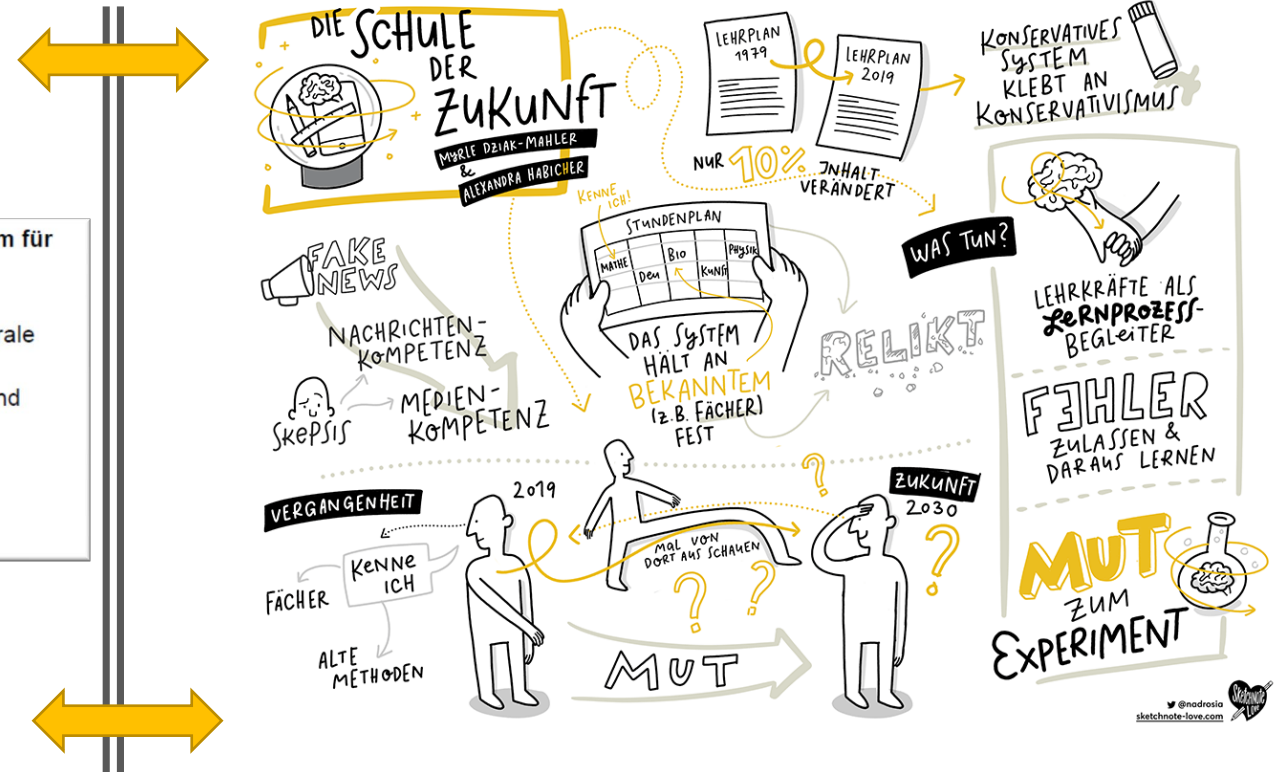 m für
rale
nd
DIE SCHULE
DER
ZUKUNFT
MYRLE DZIAK-MAHLER
&
ALEXANDRA HABICHER
LEHRPLAN
1979
LEHRPLAN
2019
NUR 10% INHALT
VERÄNDERT
KONSERVATIVES
SYSTEM
KLEBT AN
KONSERVATIVISMUS
FAKE
NEWS
NACHRICHTEN-
KOMPETENZ
SKEPSIS
MEDIEN-
KOMPETENZ
KENNE
ICH!
STUNDENPLAN
MATHE
Deu
BIO
KUNST
PHYSIK
DAS SYSTEM
HÄLT AN
BEKANNTEM
(Z.B. FÄCHER)
FEST
RELIKT
WAS TUN?
LEHRKRÄFTE ALS
LERNPROZESS-
BEGLEITER
FEHLER
ZULASSEN &
DARAUS LERNEN
MUT
ZUM
EXPERIMENT
VERGANGENHEIT
2019
KENNE
ICH
FÄCHER
ALTE
METHODEN
MAL VON
DORT AUS SCHAUEN
?
?
?
?
ZUKUNFT
2030
MUT
@nadrosia
sketchnote-love.com
Sketchnote
Love